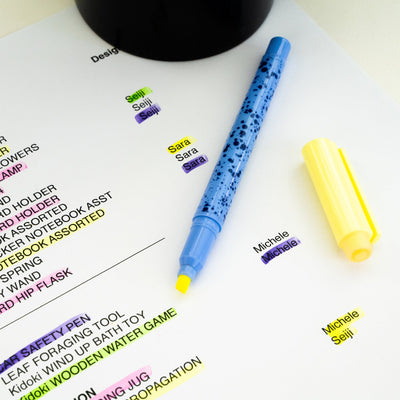 Desig
Seiji
Seiji
Seiji
Sara
Sara
Sara
Michele
Michele
Michele
Seiji
ER
ER
LOWERS
CAMP
RD HOLDER
RD HOLDER
OK ASSORTED
CKER NOTEBOOK ASST
NOTEBOOK ASSORTED
SPRING
Y WAND
RD HIP FLASK
CAR SAFETY PEN
LEAF FORAGING TOOL
Kidoki WIND UP BATH TOY
Kidoki WOODEN WATER GAME
ION
ING JUG
PROPAGATION